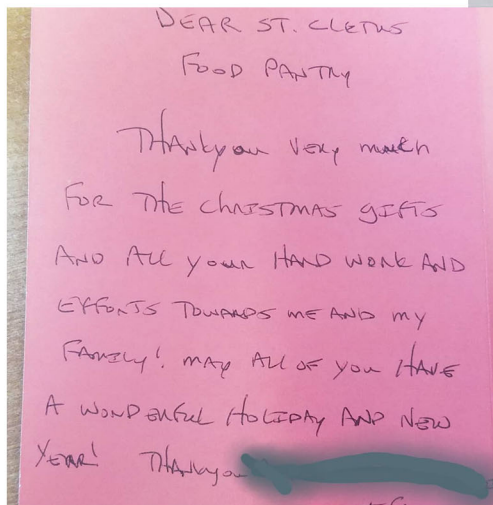 DEAR ST. CLETUS
FOOD PANTRY
THANKyou VERY much
FOR THE CHRISTMAS GIFTS
AND ALL your HARD WORK AND
EFFORTS TOWARDS ME AND my
FAMILY! MAY ALL OF YOU HAVE
A WONDERFUL HOLIDAY AND NEW
YEAR! THANKyou